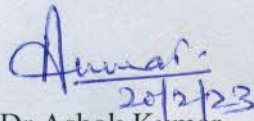 Kumar.
20/2/23
Dr Ashok Kumar